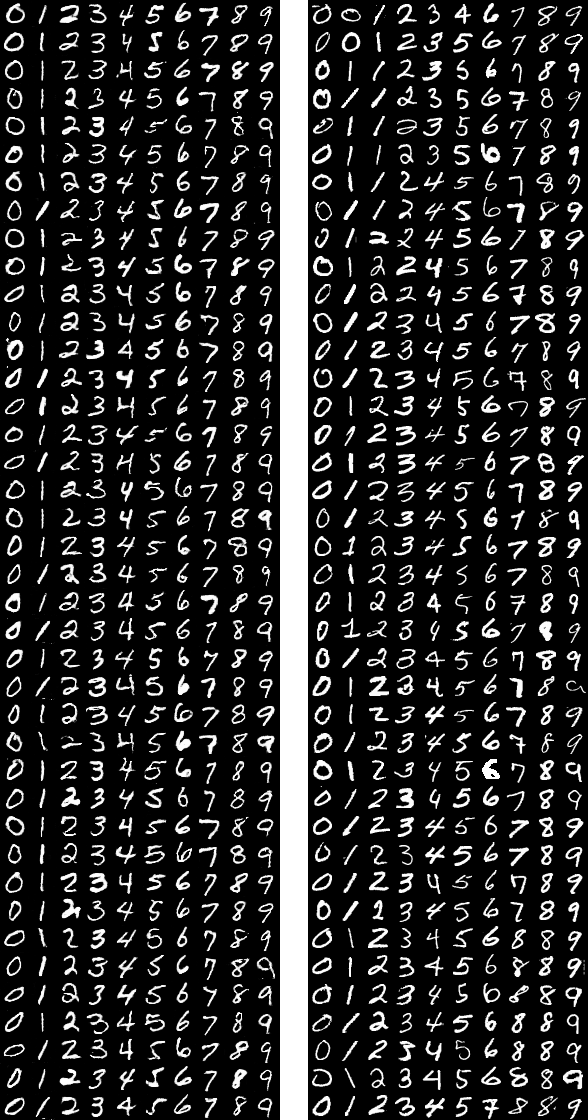 0 1 2 3 4 5 6 7 8 9
0 1 2 3 4 5 6 7 8 9
0 1 2 3 4 5 6 7 8 9
0 1 2 3 4 5 6 7 8 9
0 1 2 3 4 5 6 7 8 9
0 1 2 3 4 5 6 7 8 9
0 1 2 3 4 5 6 7 8 9
0 1 2 3 4 5 6 7 8 9
0 1 2 3 4 5 6 7 8 9
0 1 2 3 4 5 6 7 8 9
0 1 2 3 4 5 6 7 8 9
0 1 2 3 4 5 6 7 8 9
0 1 2 3 4 5 6 7 8 9
0 1 2 3 4 5 6 7 8 9
0 1 2 3 4 5 6 7 8 9
0 1 2 3 4 5 6 7 8 9
0 1 2 3 4 5 6 7 8 9
0 1 2 3 4 5 6 7 8 9
0 1 2 3 4 5 6 7 8 9
0 1 2 3 4 5 6 7 8 9
0 1 2 3 4 5 6 7 8 9
0 1 2 3 4 5 6 7 8 9
0 1 2 3 4 5 6 7 8 9
0 1 2 3 4 5 6 7 8 9
0 1 2 3 4 5 6 7 8 9
0 1 2 3 4 5 6 7 8 9
0 1 2 3 4 5 6 7 8 9
0 1 2 3 4 5 6 7 8 9
0 1 2 3 4 5 6 7 8 9
0 1 2 3 4 5 6 7 8 9
0 1 2 3 4 5 6 7 8 9
0 1 2 3 4 5 6 7 8 9
0 1 2 3 4 5 6 7 8 9
0 1 2 3 4 5 6 7 8 9
0 1 2 3 4 5 6 7 8 9
0 1 2 3 4 5 6 7 8 9
0 1 2 3 4 5 6 7 8 9
0 1 2 3 4 5 6 7 8 9
0 1 2 3 4 5 6 7 8 9
0 1 2 3 4 5 6 7 8 9
0 0 1 2 3 4 6 7 8 9
0 0 1 2 3 5 6 7 8 9
0 1 1 2 3 5 6 7 8 9
0 1 1 2 3 5 6 7 8 9
0 1 1 2 3 5 6 7 8 9
0 1 1 2 3 5 6 7 8 9
0 1 1 2 4 5 6 7 8 9
0 1 1 2 4 5 6 7 8 9
0 1 2 2 4 5 6 7 8 9
0 1 2 2 4 5 6 7 8 9
0 1 2 2 4 5 6 7 8 9
0 1 2 3 4 5 6 7 8 9
0 1 2 3 4 5 6 7 8 9
0 1 2 3 4 5 6 7 8 9
0 1 2 3 4 5 6 7 8 9
0 1 2 3 4 5 6 7 8 9
0 1 2 3 4 5 6 7 8 9
0 1 2 3 4 5 6 7 8 9
0 1 2 3 4 5 6 7 8 9
0 1 2 3 4 5 6 7 8 9
0 1 2 3 4 5 6 7 8 9
0 1 2 3 4 5 6 7 8 9
0 1 2 3 4 5 6 7 8 9
0 1 2 3 4 5 6 7 8 9
0 1 2 3 4 5 6 7 8
0 1 2 3 4 5 6 7 8 9
0 1 2 3 4 5 6 7 8 9
0 1 2 3 4 5 6 7 8 9
0 1 2 3 4 5 6 7 8 9
0 1 2 3 4 5 6 7 8 9
0 1 2 3 4 5 6 7 8 9
0 1 2 3 4 5 6 7 8 9
0 1 2 3 4 5 6 7 8 9
0 1 2 3 4 5 6 8 8 9
0 1 2 3 4 5 6 8 8 9
0 1 2 3 4 5 6 8 8 9
0 1 2 3 4 5 6 8 8 9
0 1 2 3 4 5 6 8 8 9
0 1 2 3 4 5 6 8 8 9
0 1 2 3 4 5 7 8 8 9